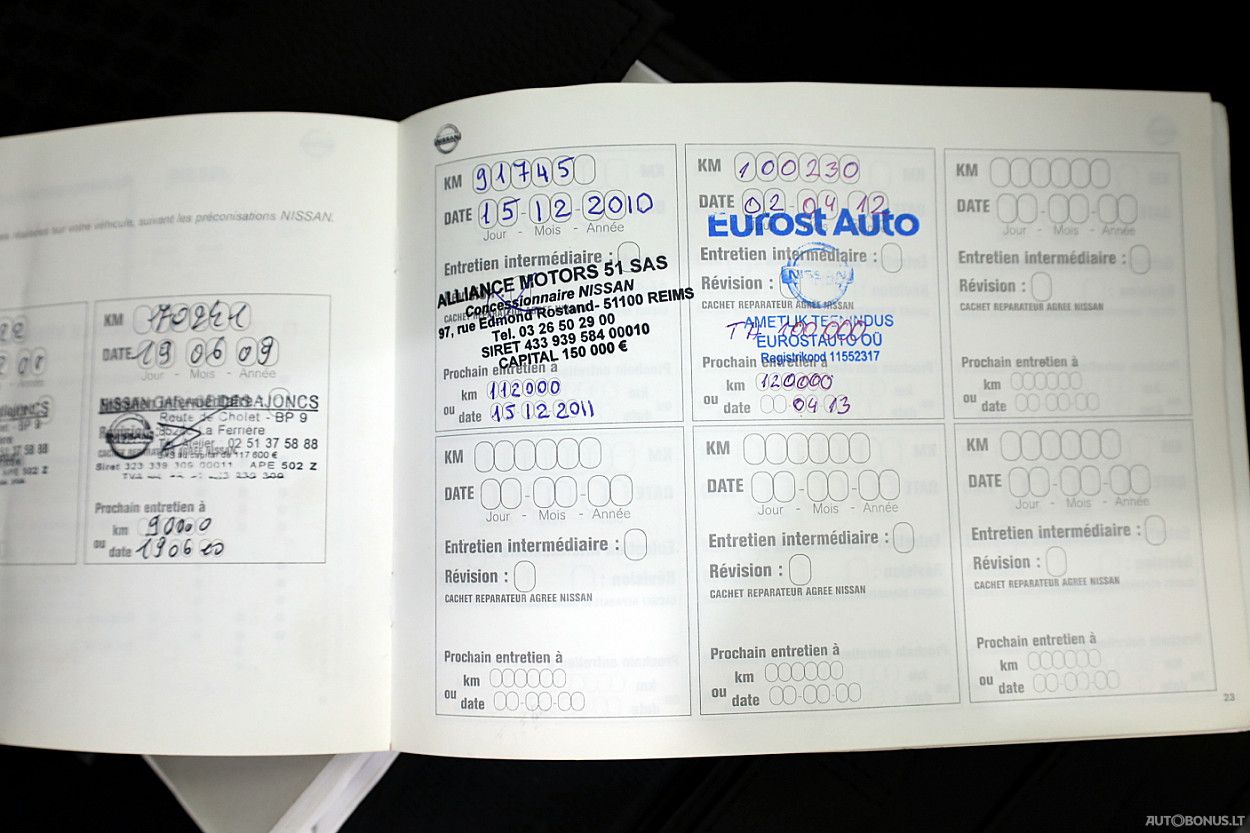 es réalisées sur votre véhicule, suivant les préconisations NISSAN.
KM 170241
DATE 19 06 09
Jour - Mois - Année
NISSAN GARAGE DES AJONCS
Route de Cholet - BP 9
La Ferrière
Atelier 02 51 37 58 88
117 600 €
APE 502 Z
Prochain entretien à
km 90000
ou date 19 06 10
NISSAN
KM 91745
DATE 15-12-2010
Jour - Mois - Année
Entretien intermédiaire :
ALLIANCE MOTORS 51 SAS
Concessionnaire NISSAN
97, rue Edmond Rostand- 51100 REIMS
Tel. 03 26 50 29 00
SIRET 433 939 584 00010
CAPITAL 150 000 €
Prochain entretien à
km 112000
ou date 15 12 2011
KM 100230
DATE 02-04-12
Eurost Auto
Entretien intermédiaire :
NISSAN
Révision :
CACHET REPARATEUR AGREE NISSAN
AMETLIK TEENINDUS
100 000
EUROSTAUTO OÜ
Registrikood 11552317
Prochain entretien à
km 120000
ou date 04 13
KM
DATE
Jour - Mois - Année
Entretien intermédiaire :
Révision :
CACHET REPARATEUR AGREE NISSAN
Prochain entretien à
km
ou date
KM
DATE
Jour - Mois - Année
Entretien intermédiaire :
Révision :
CACHET REPARATEUR AGREE NISSAN
Prochain entretien à
km
ou date
KM
DATE
Jour - Mois - Année
Entretien intermédiaire :
Révision :
CACHET REPARATEUR AGREE NISSAN
Prochain entretien à
km
ou date
KM
DATE
Jour - Mois - Année
Entretien intermédiaire :
Révision :
CACHET REPARATEUR AGREE NISSAN
Prochain entretien à
km
ou date
23
AUTOBONUS.LT